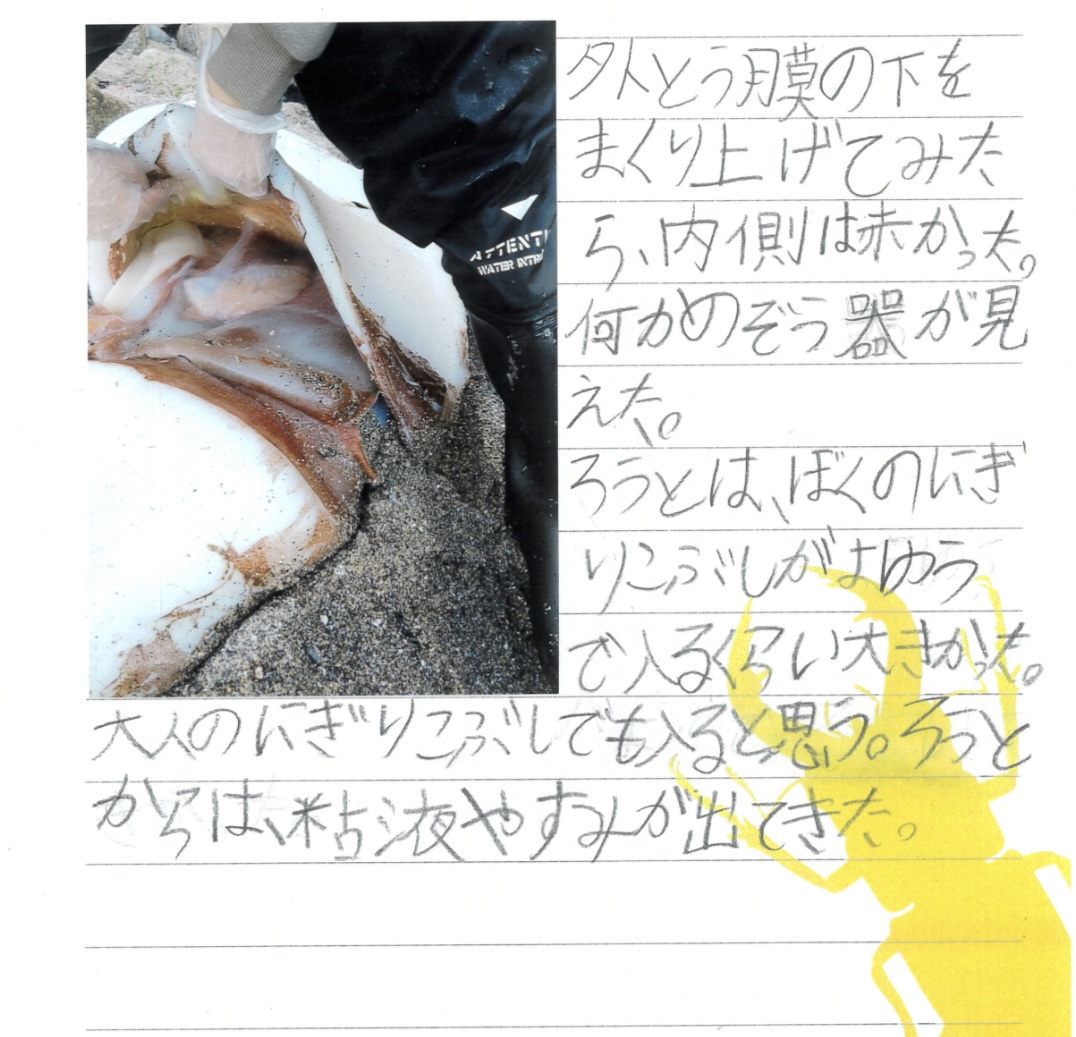 外とう膜の下を
まくり上げてみた
ら、内側は赤かった。
何かのぞう器が見
えた。
ろうとは、ぼくのにぎ
りこぶしがよゆう
で入るくらい大きかった。
大人のにぎりこぶしでも入ると思う。ろうと
からは、粘液やすみが出てきた。
ATTENTI
WATER INTR